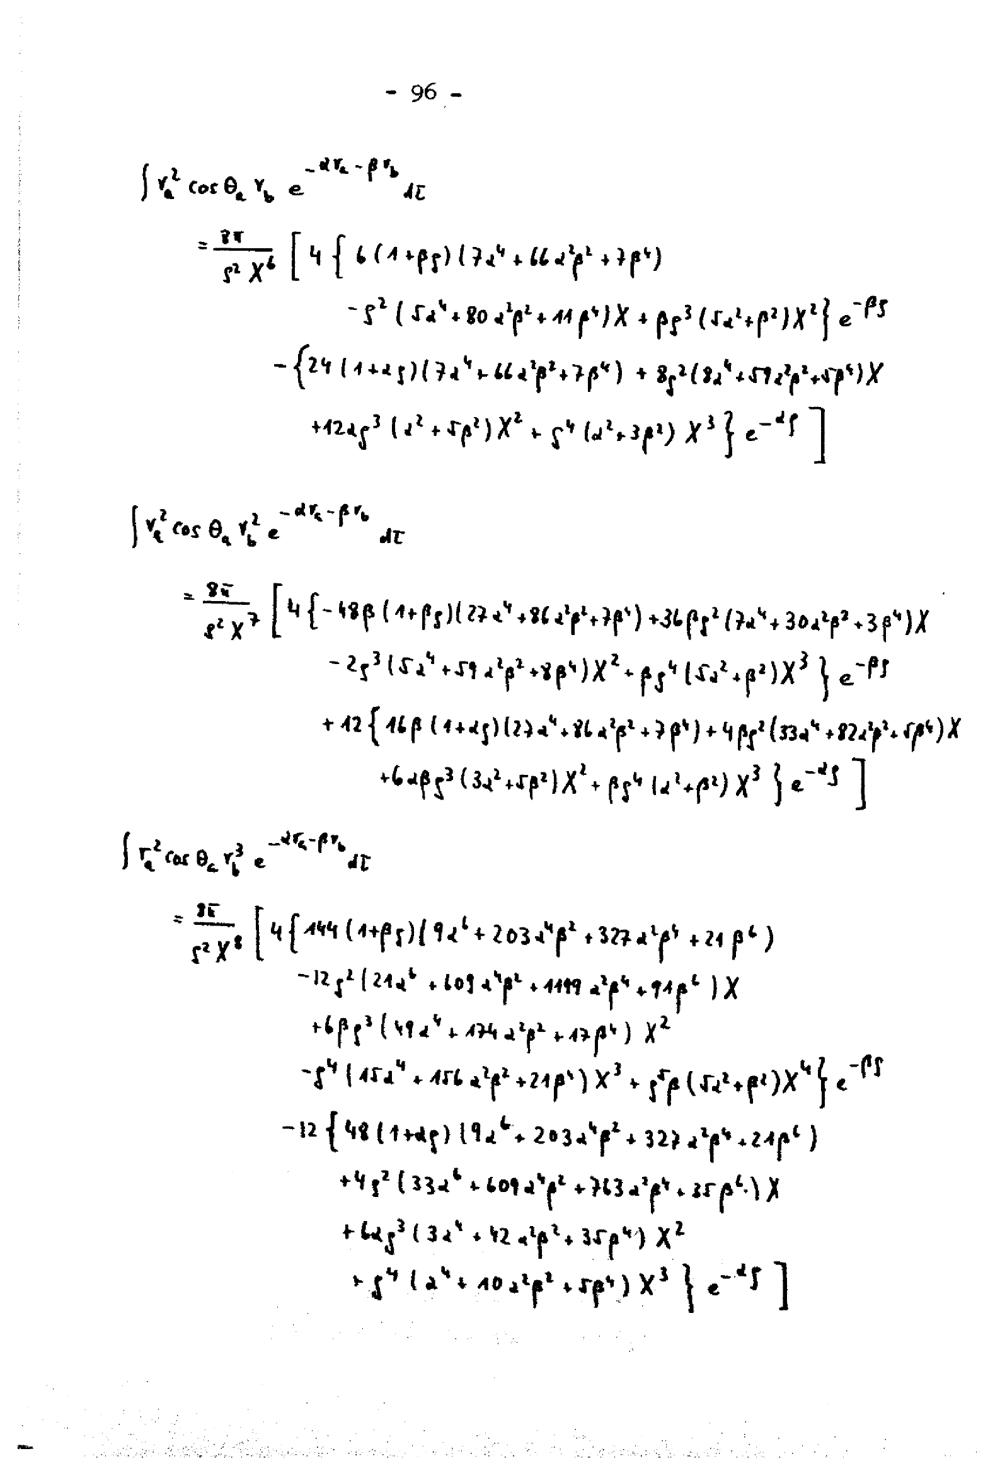 - 96 -
∫ r_a² cos θ_a r_b e^{-αr_a - βr_b} dτ
= 8π/(ρ² X⁶) [ 4 { 6 (1+βρ)(7α⁴ + 66α²β² + 7β⁴)
- ρ² (5α⁴ + 80α²β² + 11β⁴)X + βρ³ (5α²+β²)X² } e^{-βρ}
- { 24 (1+αρ)(7α⁴ + 66α²β² + 7β⁴) + 8ρ² (8α⁴ + 59α²β² + 5β⁴)X
+ 12αρ³ (α² + 5β²) X² + ρ⁴ (α² + 3β²) X³ } e^{-αρ} ]
∫ r_a² cos θ_a r_b² e^{-αr_a - βr_b} dτ
= 8π/(ρ² X⁷) [ 4 { - 48β (1+βρ)(27α⁴ + 86α²β² + 7β⁴) + 36βρ² (7α⁴ + 30α²β² + 3β⁴)X
- 2ρ³ (5α⁴ + 59α²β² + 8β⁴)X² + βρ⁴ (5α² + β²)X³ } e^{-βρ}
+ 12 { 16β (1+αρ)(27α⁴ + 86α²β² + 7β⁴) + 4βρ² (33α⁴ + 82α²β² + 5β⁴)X
+ 6αβρ³ (3α² + 5β²)X² + βρ⁴ (α² + β²) X³ } e^{-αρ} ]
∫ r_a² cos θ_a r_b³ e^{-αr_a - βr_b} dτ
= 8π/(ρ² X⁸) [ 4 { 144 (1+βρ)(9α⁶ + 203α⁴β² + 327α²β⁴ + 21β⁶)
- 12ρ² (21α⁶ + 609α⁴β² + 1199α²β⁴ + 91β⁶)X
+ 6βρ³ (49α⁴ + 174α²β² + 17β⁴) X²
- ρ⁴ (15α⁴ + 156α²β² + 21β⁴)X³ + ρ⁵β (5α² + β²)X⁴ } e^{-βρ}
- 12 { 48 (1+αρ)(9α⁶ + 203α⁴β² + 327α²β⁴ + 21β⁶)
+ 4ρ² (33α⁶ + 609α⁴β² + 763α²β⁴ + 35β⁶)X
+ 6αρ³ (3α⁴ + 42α²β² + 35β⁴) X²
+ ρ⁴ (α⁴ + 10α²β² + 5β⁴) X³ } e^{-αρ} ]